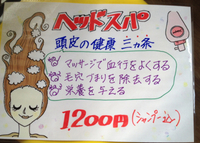 ヘッドスパ
頭皮の健康 三ヵ条
マッサージで血行をよくする
毛穴づまりを除去する
栄養を与える
1,200円(シャンプー込)